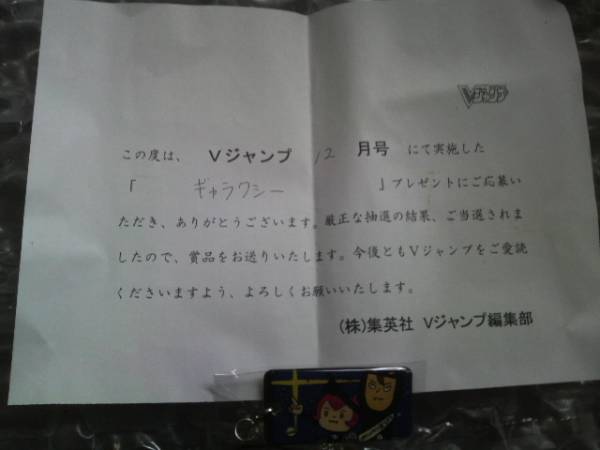 Vジャンプ
この度は、 Vジャンプ 12 月号 にて実施した
「 ギャラクシー 」プレゼントにご応募い
ただき、ありがとうございます。厳正な抽選の結果、ご当選されま
したので、賞品をお送りいたします。今後ともVジャンプをご愛読
くださいますよう、よろしくお願いいたします。
(株)集英社 Vジャンプ編集部